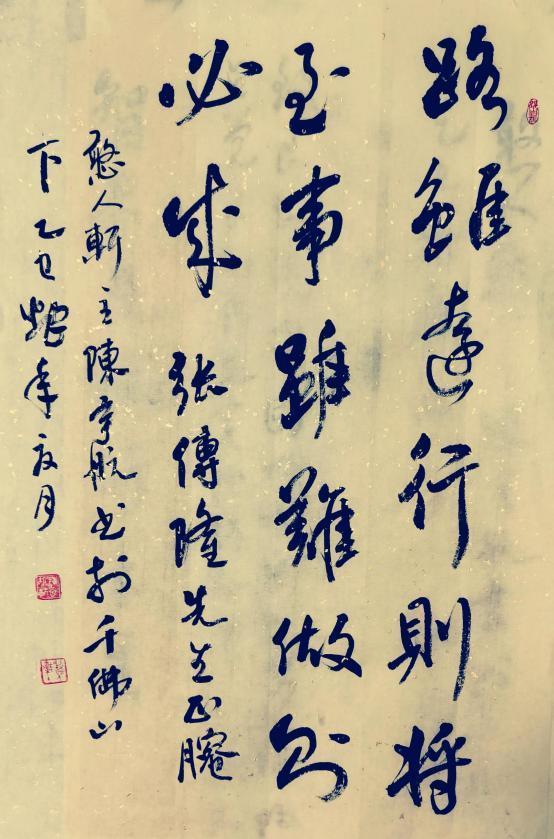 路雖遠行則將
至事雖難做則
必成 張傳隆先生正腕
憨人軒主陳宇航書於千佛山
下乙巳蛇年夏月